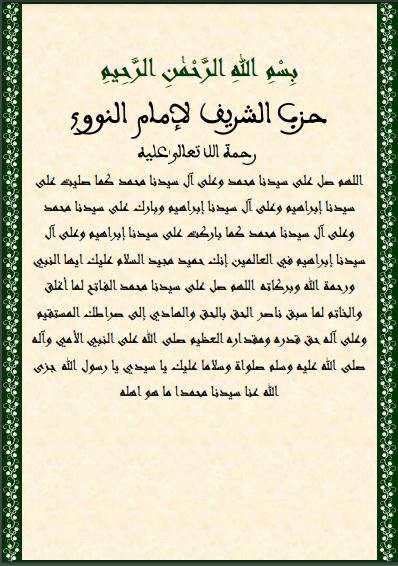 بِسْمِ اللهِ الرَّحْمٰنِ الرَّحِيمِ
حزب الشريف لإمام النووي
رحمة الله تعالى عليه
اللهم صل على سيدنا محمد وعلى آل سيدنا محمد كما صليت على
سيدنا إبراهيم وعلى آل سيدنا إبراهيم وبارك على سيدنا محمد
وعلى آل سيدنا محمد كما باركت على سيدنا إبراهيم وعلى آل
سيدنا إبراهيم في العالمين إنك حميد مجيد السلام عليك ايها النبي
ورحمة الله وبركاته اللهم صل على سيدنا محمد الفاتح لما أغلق
والخاتم لما سبق ناصر الحق بالحق والهادي إلى صراطك المستقيم
وعلى آله حق قدره ومقداره العظيم صلى الله على النبي الأمي وآله
صلى الله عليه وسلم صلواة وسلاما عليك يا سيدي يا رسول الله جزى
الله عنا سيدنا محمدا ما هو اهله